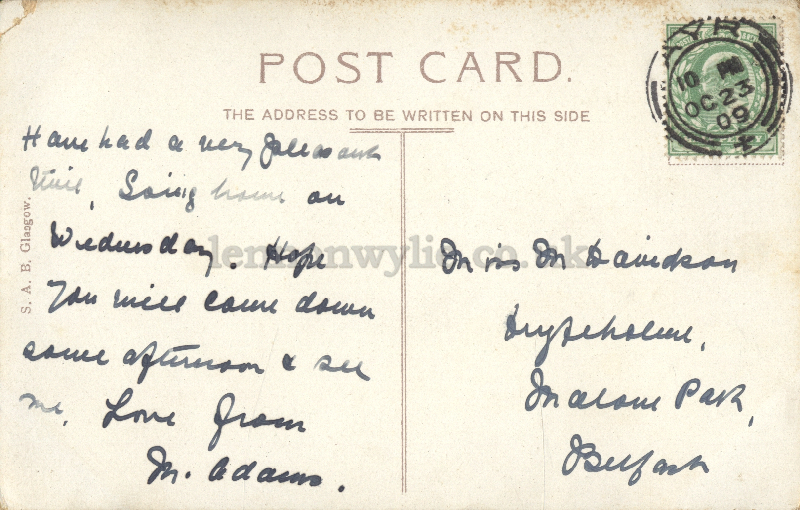 POST CARD.
THE ADDRESS TO BE WRITTEN ON THIS SIDE
AYR
10
OC 23
09
S. A. B. Glasgow.
Have had a very pleasant
time, Going home on
Wednesday. Hope
you will come down
some afternoon & see
me. Love from
M. Adams.
lennonwylie.co.uk
Miss M Davidson
Malone Park,
Belfast